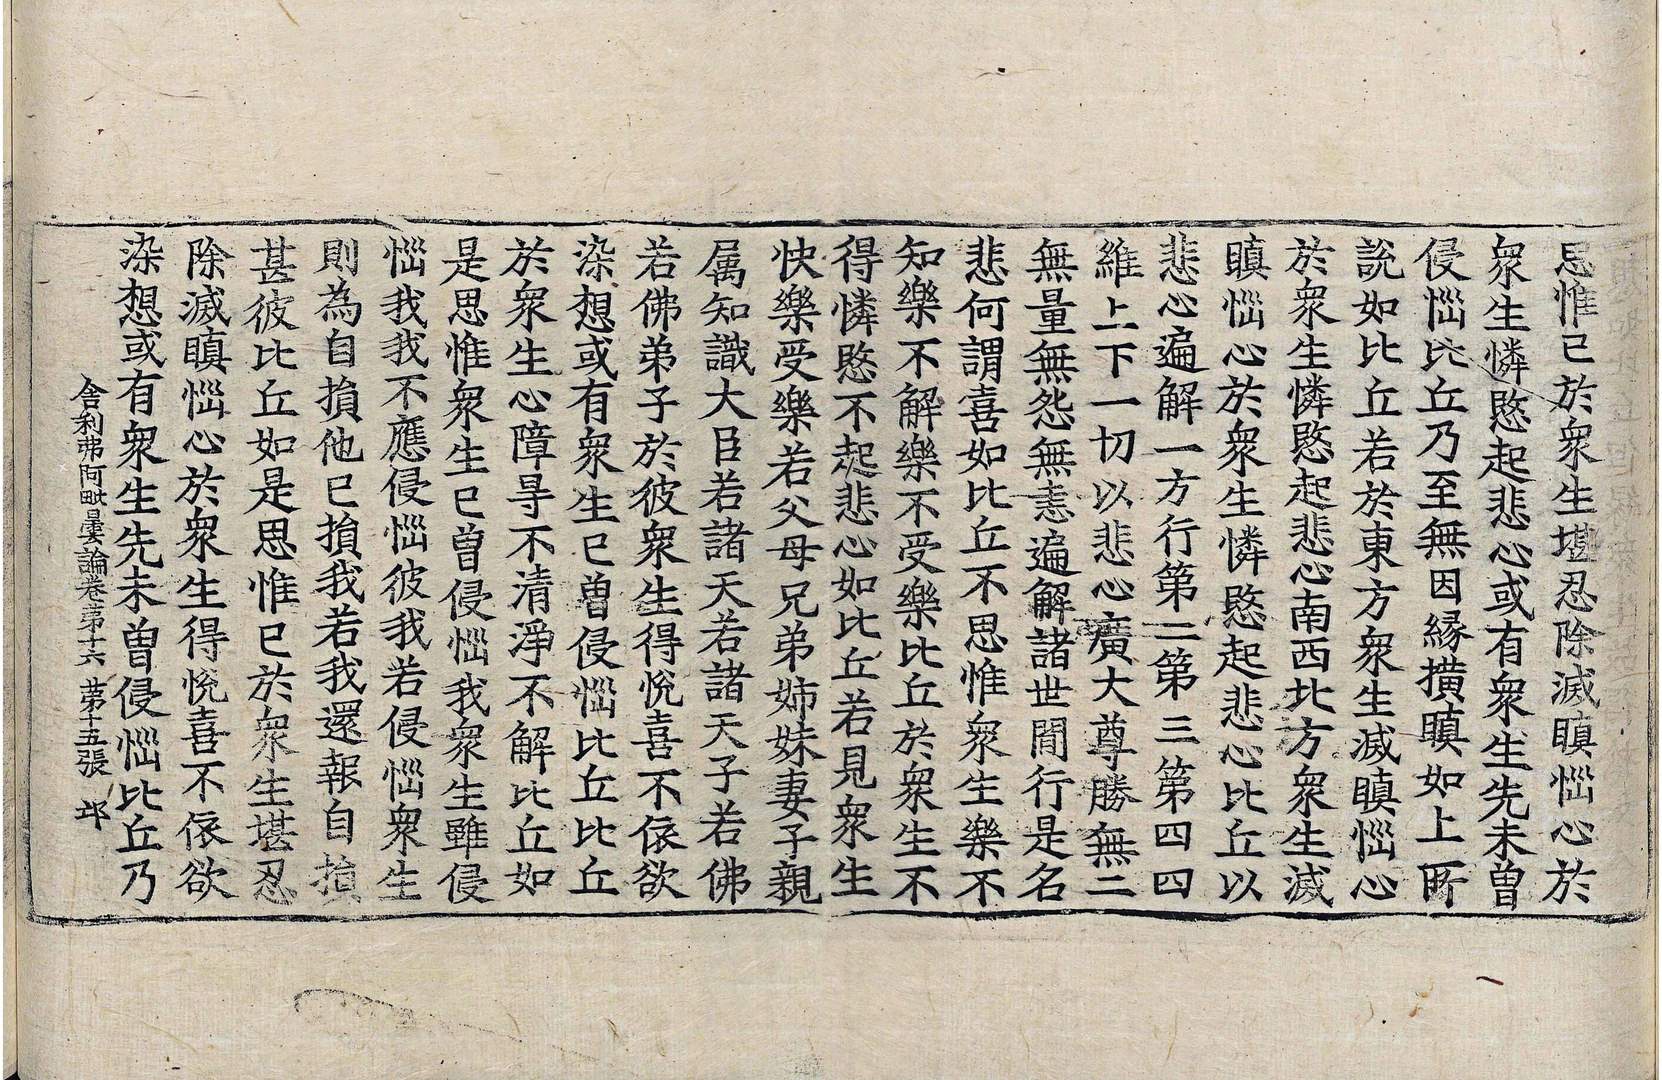 思惟已於衆生堪忍除滅瞋惱心於
衆生憐愍起悲心或有衆生先未曾
侵惱比丘乃至無因緣撗瞋如上所
說如比丘若於東方衆生滅瞋惱心
於衆生憐愍起悲心南西北方衆生滅
瞋惱心於衆生憐愍起悲心比丘以
悲心遍解一方行第二第三第四四
維上下一切以悲心廣大尊勝無二
無量無怨無恚遍解諸世間行是名
悲何謂喜如比丘不思惟衆生樂不
知樂不解樂不受樂比丘於衆生不
得憐愍不起悲心如比丘若見衆生
快樂受樂若父母兄弟姊妹妻子親
属知識大臣若諸天若諸天子若佛
若佛弟子於彼衆生得悅喜不依欲
染想或有衆生已曾侵惱比丘比丘
於衆生心障㝵不清淨不解比丘如
是思惟衆生已曾侵惱我衆生雖侵
惱我我不應侵惱彼我若侵惱衆生
則為自損他已損我若我還報自損
甚彼比丘如是思惟已於衆生堪忍
除滅瞋惱心於衆生得悅喜不依欲
染想或有衆生先未曾侵惱比丘乃
舍利弗阿毗曇論卷第十六 第十五張 邙